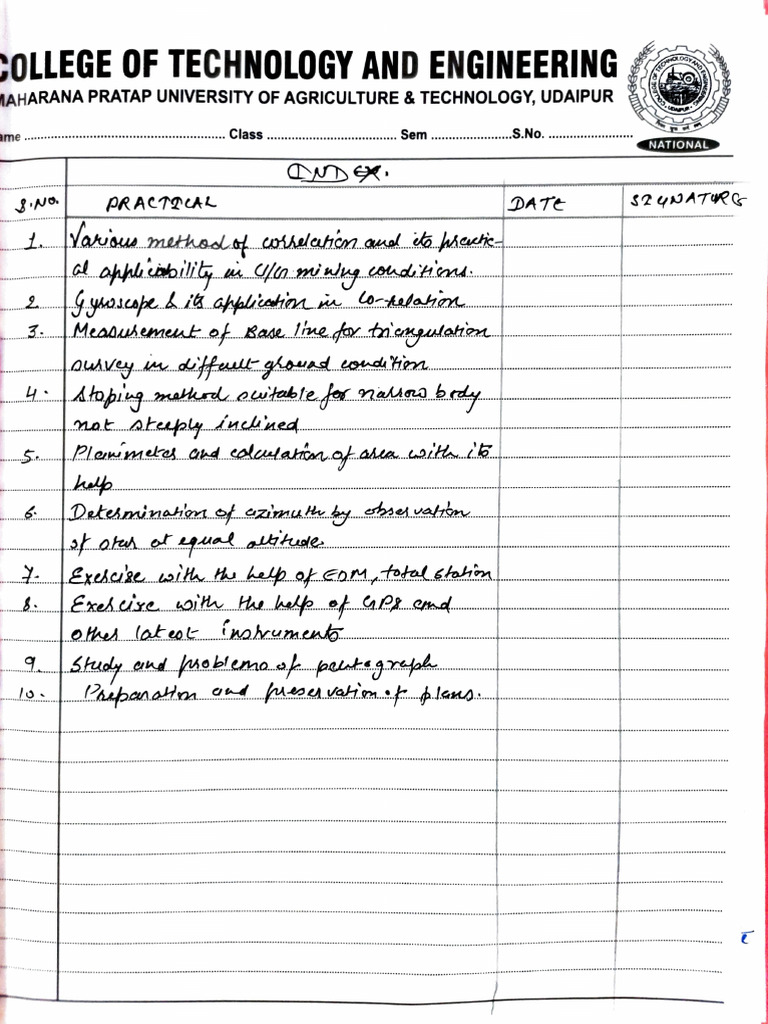 COLLEGE OF TECHNOLOGY AND ENGINEERING
MAHARANA PRATAP UNIVERSITY OF AGRICULTURE & TECHNOLOGY, UDAIPUR
ame .......... Class .......... Sem .......... S.No. ..........
NATIONAL
INDEX.
S.NO. PRACTICAL DATE SIGNATURE
1. Various method of correlation and its practic-
al applicability in U/G mining conditions.
2 Gyroscope & its application in Co-relation
3. Measurement of Base line for triangulation
survey in diffcult ground condition
4. Stoping method suitable for narrow body
not steeply inclined
5. Planimeter and calculation of area with its
help
6. Determination of azimuth by observation
of star at equal altitude.
7. Exercise with the help of EDM, total station
8. Exercise with the help of GPS and
other latest instruments
9. Study and problems of pentograph
10. Preparation and preservation of plans.